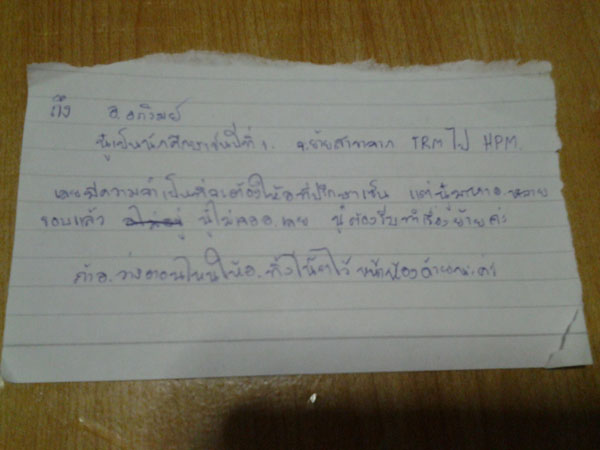 ถึง อ.อภิรมย์
หนูเป็นนักศึกษาชั้นปีที่ 1. จะย้ายสาขาจาก TRM ไป HPM.
เลยมีความจำเป็นที่จะต้องให้อ.ที่ปรึกษาเซ็น แต่หนูมาหาอ.หลาย
รอบแล้ว หนูไม่เจออ.เลย หนูต้องรีบทำเรื่องย้ายค่ะ
ถ้าอ.ว่างตอนไหนให้อ. ทิ้งโน๊ตไว้ หน้าห้องด้วยนะค่ะ